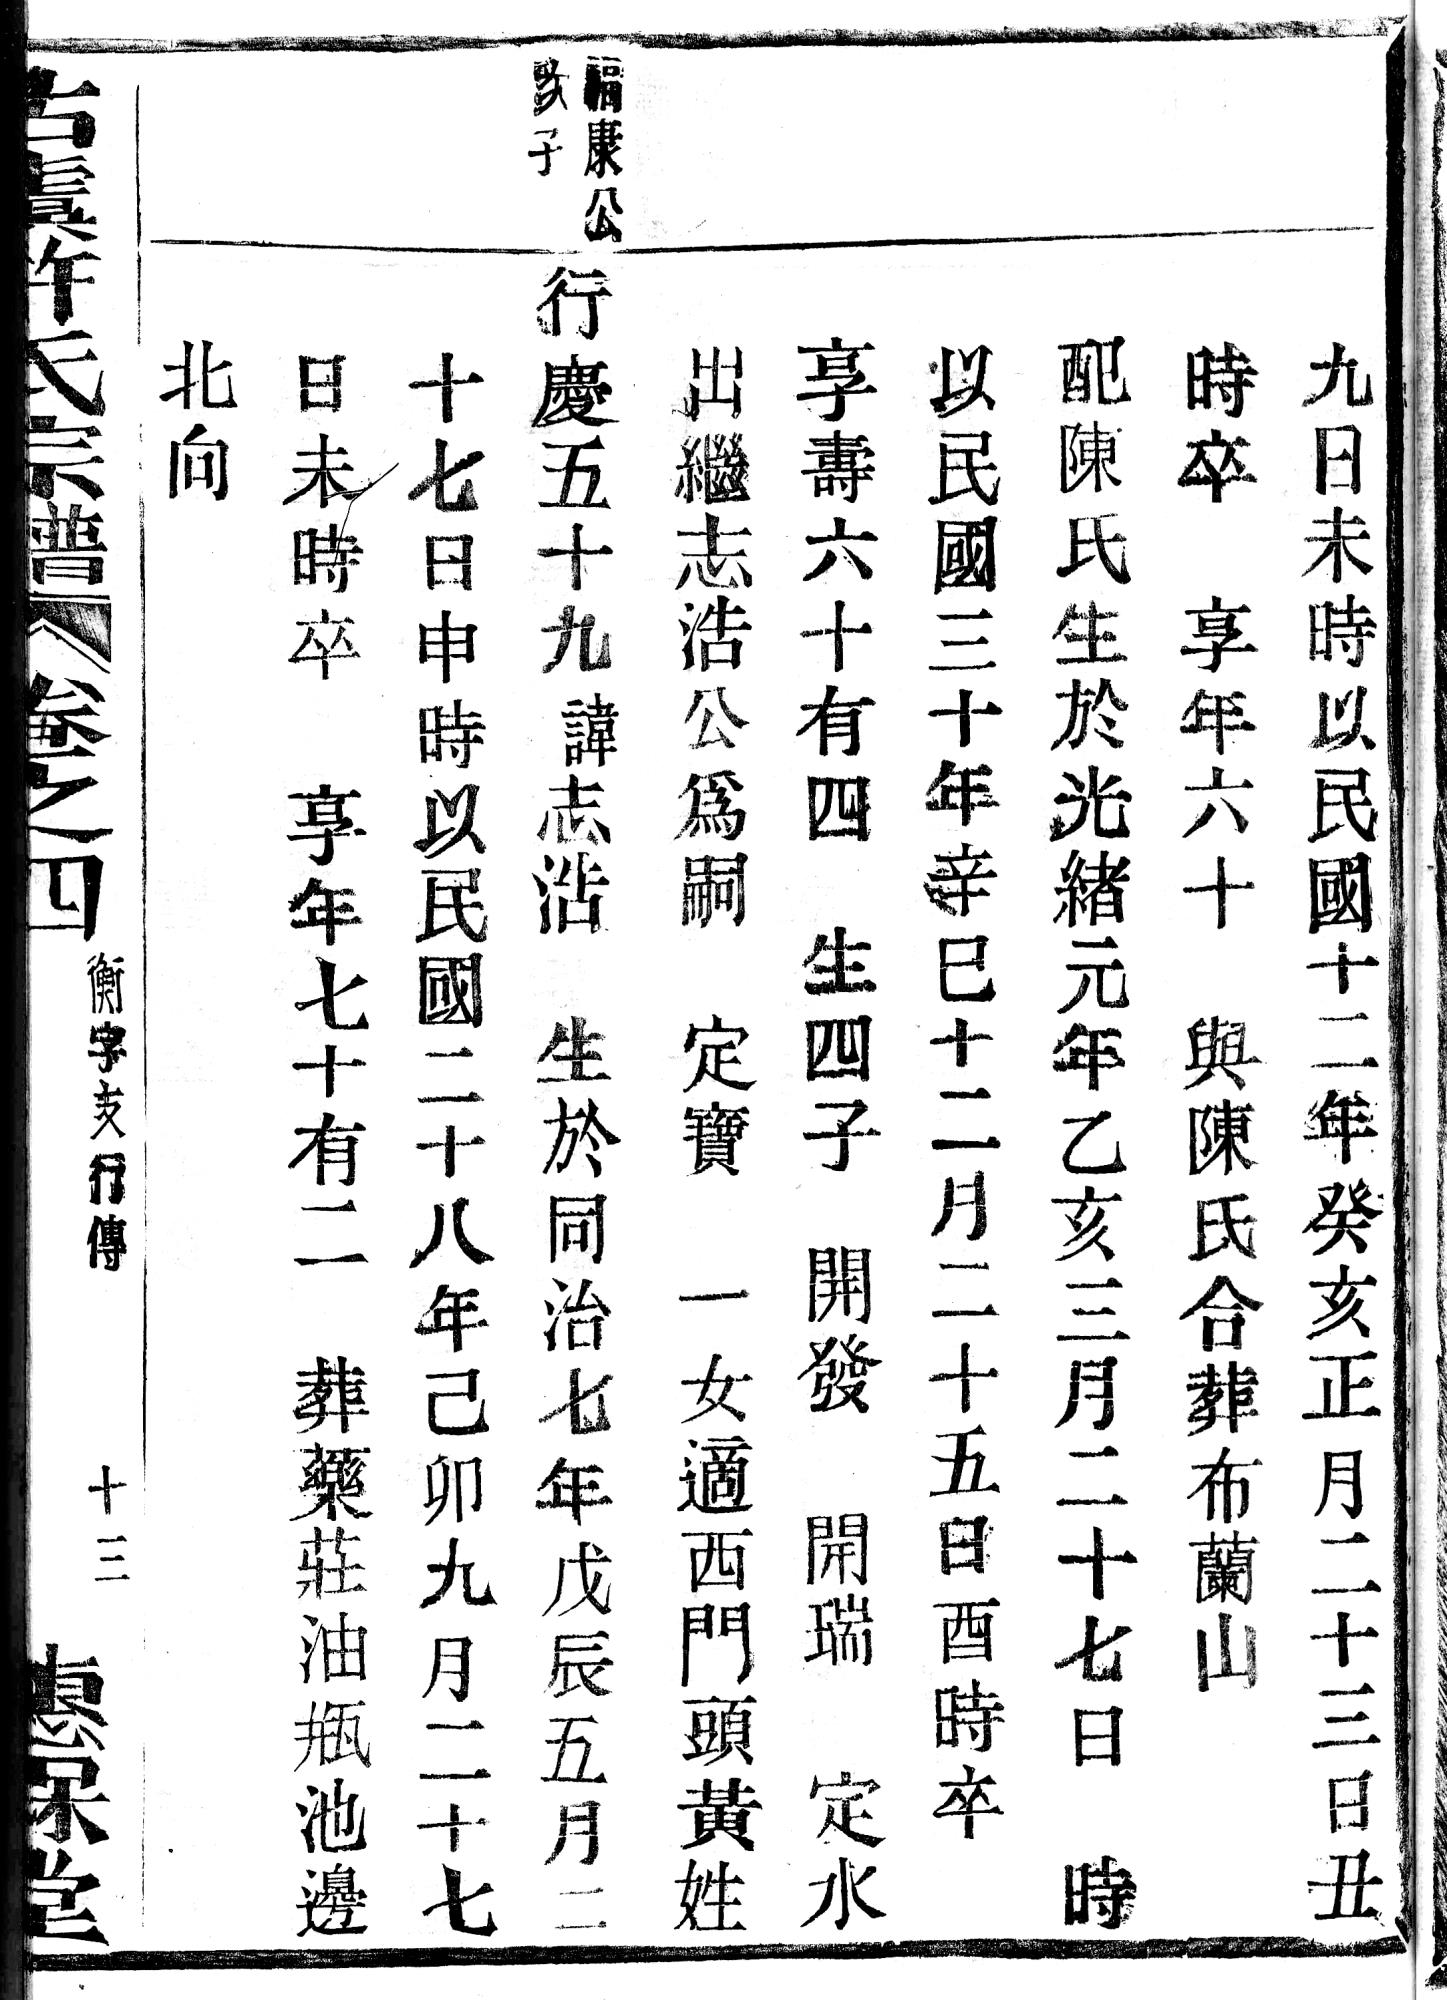 九日未時以民國十二年癸亥正月二十三日丑
時卒　享年六十　與陳氏合葬布蘭山
配陳氏生於光緒元年乙亥三月二十七日　時
以民國三十年辛巳十二月二十五日酉時卒
享壽六十有四　生四子　開發　開瑞　定水
出繼志浩公爲嗣　定寶　一女適西門頭黃姓
福康公
子
行慶五十九諱志浩　生於同治七年戊辰五月二
十七日申時以民國二十八年己卯九月二十七
日未時卒　享年七十有二　葬藥莊油瓶池邊
北向
古虞許氏宗譜　卷之四　衡字支行傳　十三　惠保堂